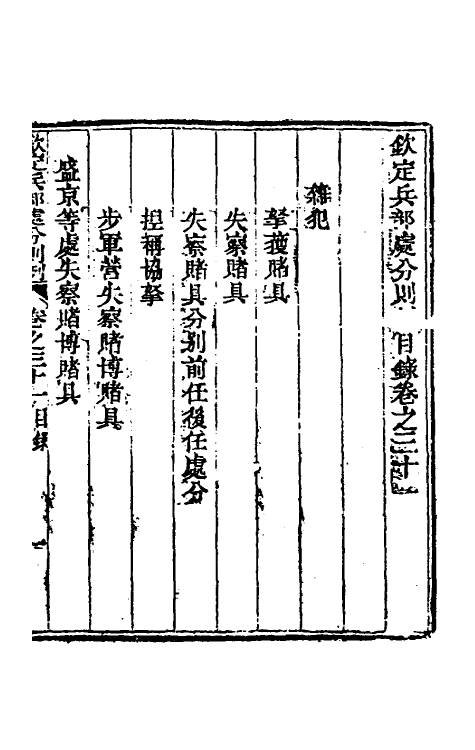 欽定兵部處分則例 目錄卷之三十一
雜犯
拏獲賭具
失察賭具
失察賭具分别前任後任處分
捏稱協拏
步軍營失察賭博賭具
盛京等處失察賭博賭具
欽定兵部處分則例 卷之三十一目錄 一